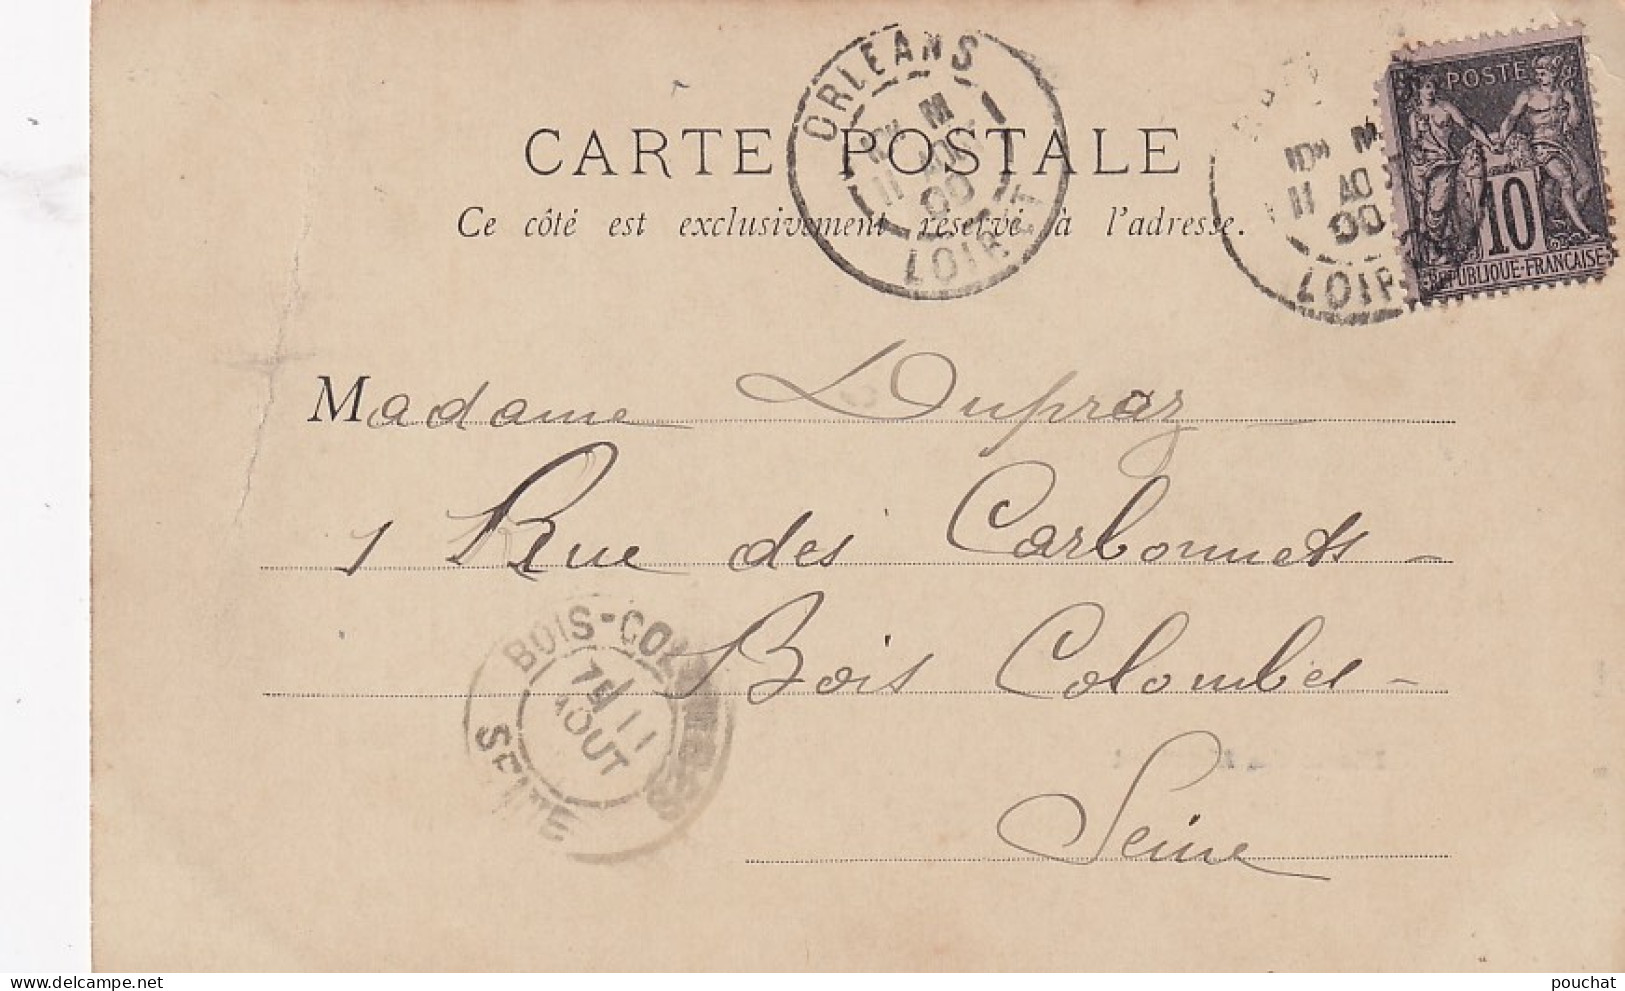 ORLEANS
M
11 AOUT
00
LOIRET
M
11 AO
00
LOIR
POSTE
10
REPUBLIQUE-FRANÇAISE
CARTE POSTALE
Ce côté est exclusivement réservé à l'adresse.
Madame Dupraz
1 Rue des Carbonnets -
Bois Colombes -
Seine
BOIS-COLOMBES
11
AOUT
SEINE
pouchat